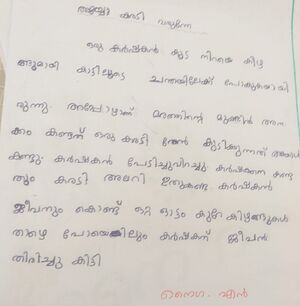 അയ്യോ കരടി വരുന്നേ
ഒരു കർഷകൻ കുട നിറയെ കിഴ
ങ്ങുമായി കാട്ടിലൂടെ ചന്തയിലേക്ക് പോകുകയായി
രുന്നു. അപ്പോഴാണ് മരത്തിന്റെ മുകളിൽ അന
ക്കം കണ്ടത് ഒരു കരടി തേൻ കുടിക്കുന്നത് അയാൾ
കണ്ടു. കർഷകൻ പേടിച്ചുവിറച്ചു. കർഷകനെ കണ്ട
തും കരടി അലറി ഇതുകണ്ട കർഷകൻ
ജീവനും കൊണ്ട് ഒറ്റ ഓട്ടം കുറേ കിഴങ്ങുകൾ
താഴെ പോയെങ്കിലും കർഷകന് ജീവൻ
തിരിച്ചു കിട്ടി
നൈഗ. എൻ